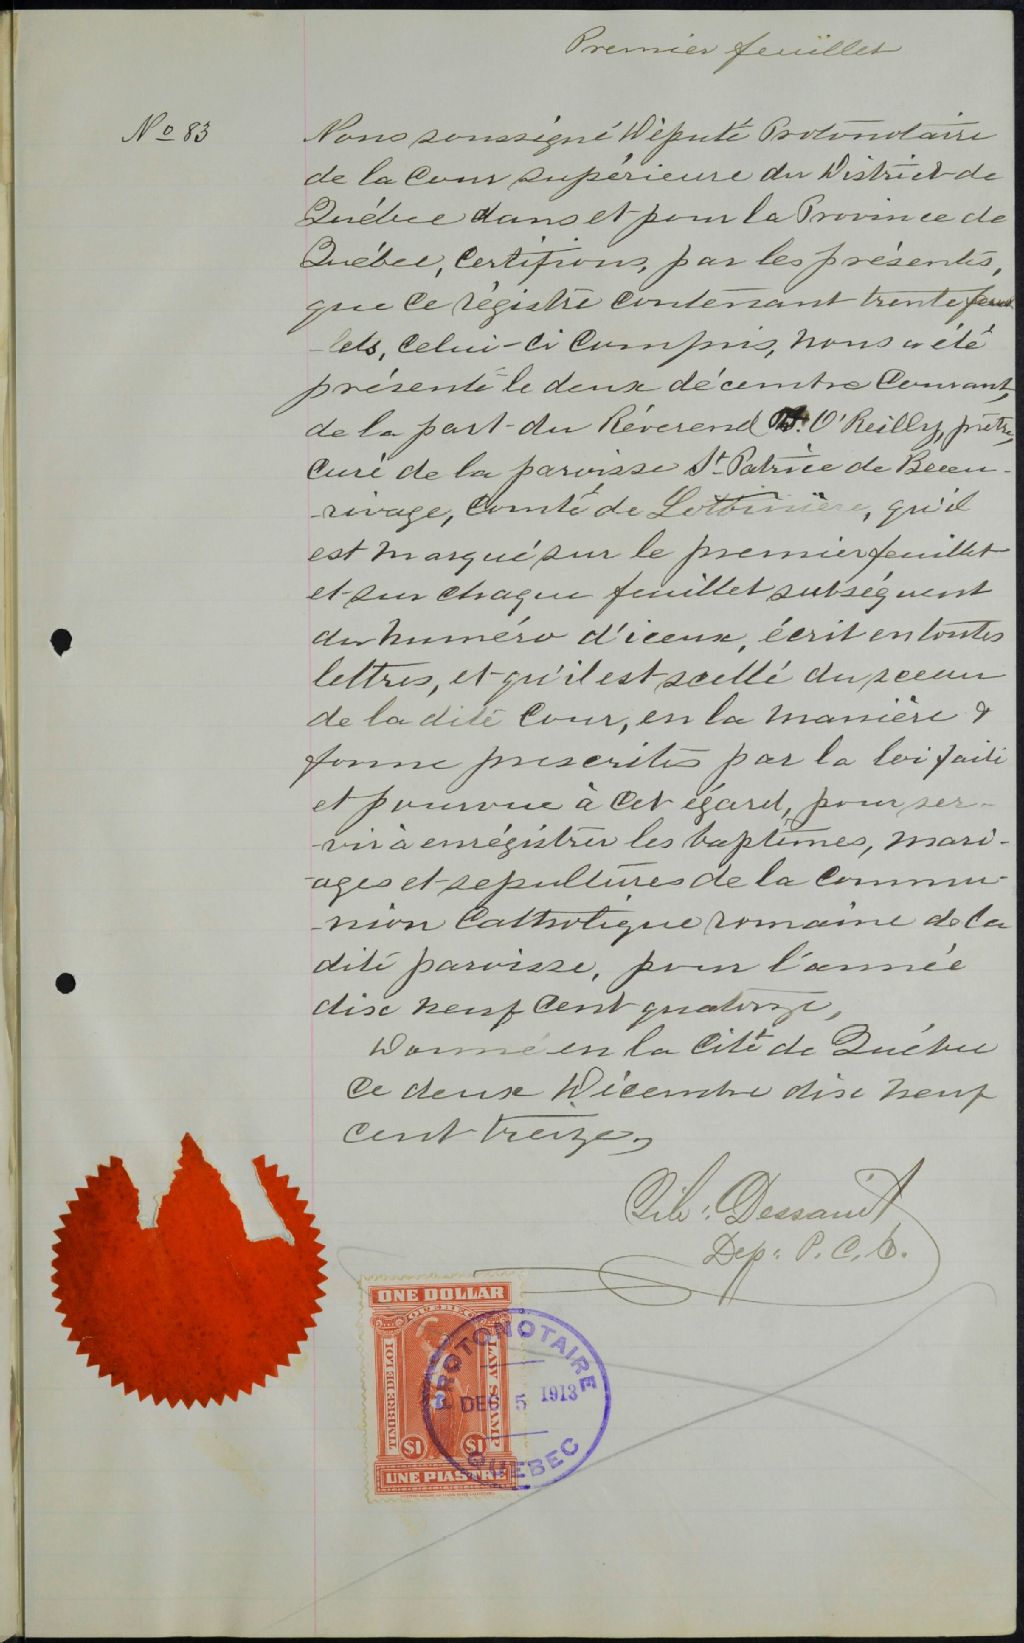 Premier feuillet
No 83
Nous soussigné Député Protonotaire
de la Cour supérieure du District de
Québec dans et pour la Province de
Québec, Certifions, par les présentes,
que ce régistre contenant trente feuil
-lets, celui-ci compris, nous a été
présenté le deux décembre Courant,
de la part du Révérend O'Reilly, prêtre,
Curé de la paroisse St Patrice de Beau-
-rivage, Comté de Lotbinière, qu'il
est marqué sur le premier feuillet
et sur chaque feuillet subséquent
du numéro d'iceux, écrit en toutes
lettres, et qu'il est scellé du sceau
de la dite Cour, en la manière &
forme prescrites par la loi faite
et pourvue à cet égard, pour ser-
-vir à enrégistrer les baptêmes, mari-
-ages et sepultures de la Commu-
-nion Catholique romaine de la
dite paroisse, pour l'année
dix neuf cent quatorze,
Donné en la Cité de Québec
ce deux Décembre dix neuf
cent treize,
Dessault
Dep: P. C. S.
ONE DOLLAR
QUEBEC
TIMBRE DE LOI
LAW STAMP
$1 $1
UNE PIASTRE
PROTONOTAIRE
DEC 5 1913
QUEBEC